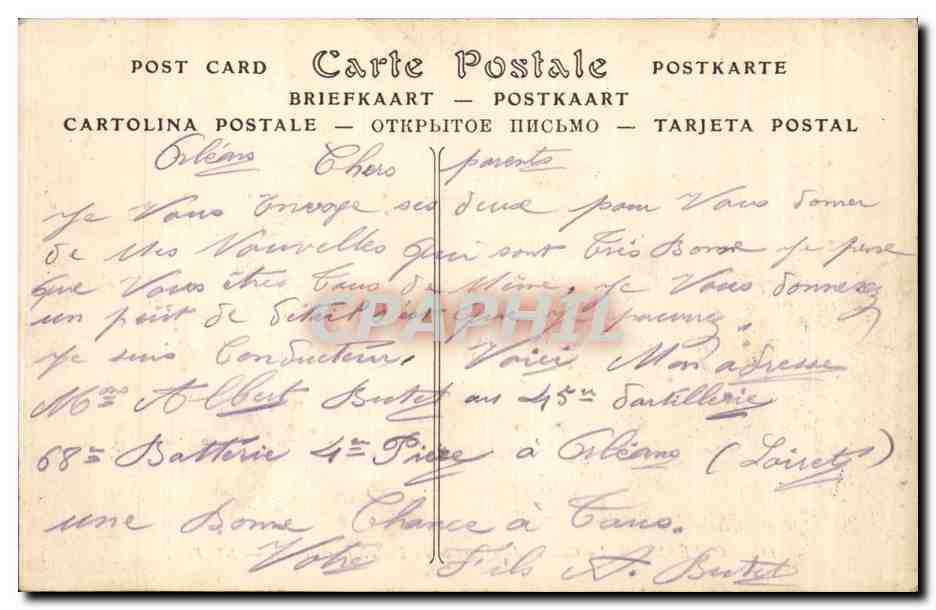 POST CARD Carte Postale POSTKARTE
BRIEFKAART — POSTKAART
CARTOLINA POSTALE — ОТКРЫТОЕ ПИСЬМО — TARJETA POSTAL
Orléans Chers parents
Je Vous Envoge ses deux pour Vous donner
de Mes Nouvelles qui sont très Bonne Je pense
que Vous êtres tous de Même, Je Vous donnerez
un petit de détail que Je
Je suis Conducteur, Voici Mon adresse
Albert Butet au 45e dartillerie
68e Batterie 4e Pièze à Orléans (Loiret)
une Bonne Chance à Tous.
Votre Fils A. Butet
CPAPHIL